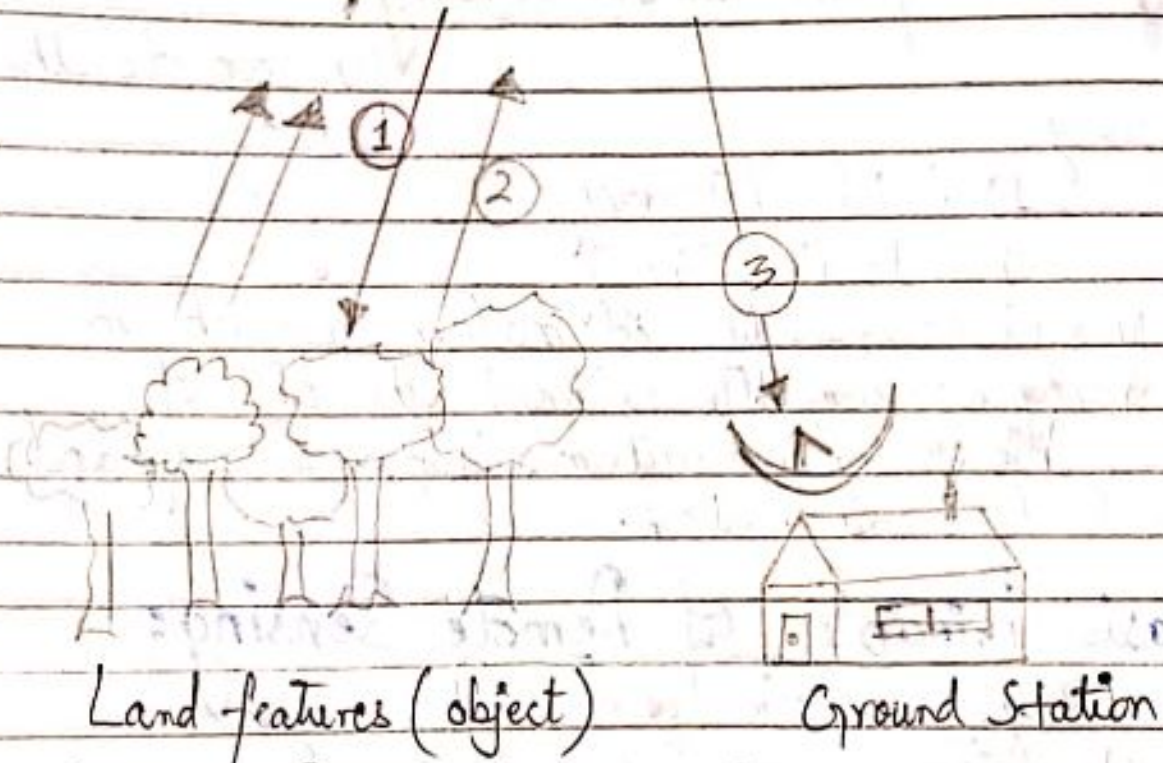 1
2
3
Land features (object)
Ground Station